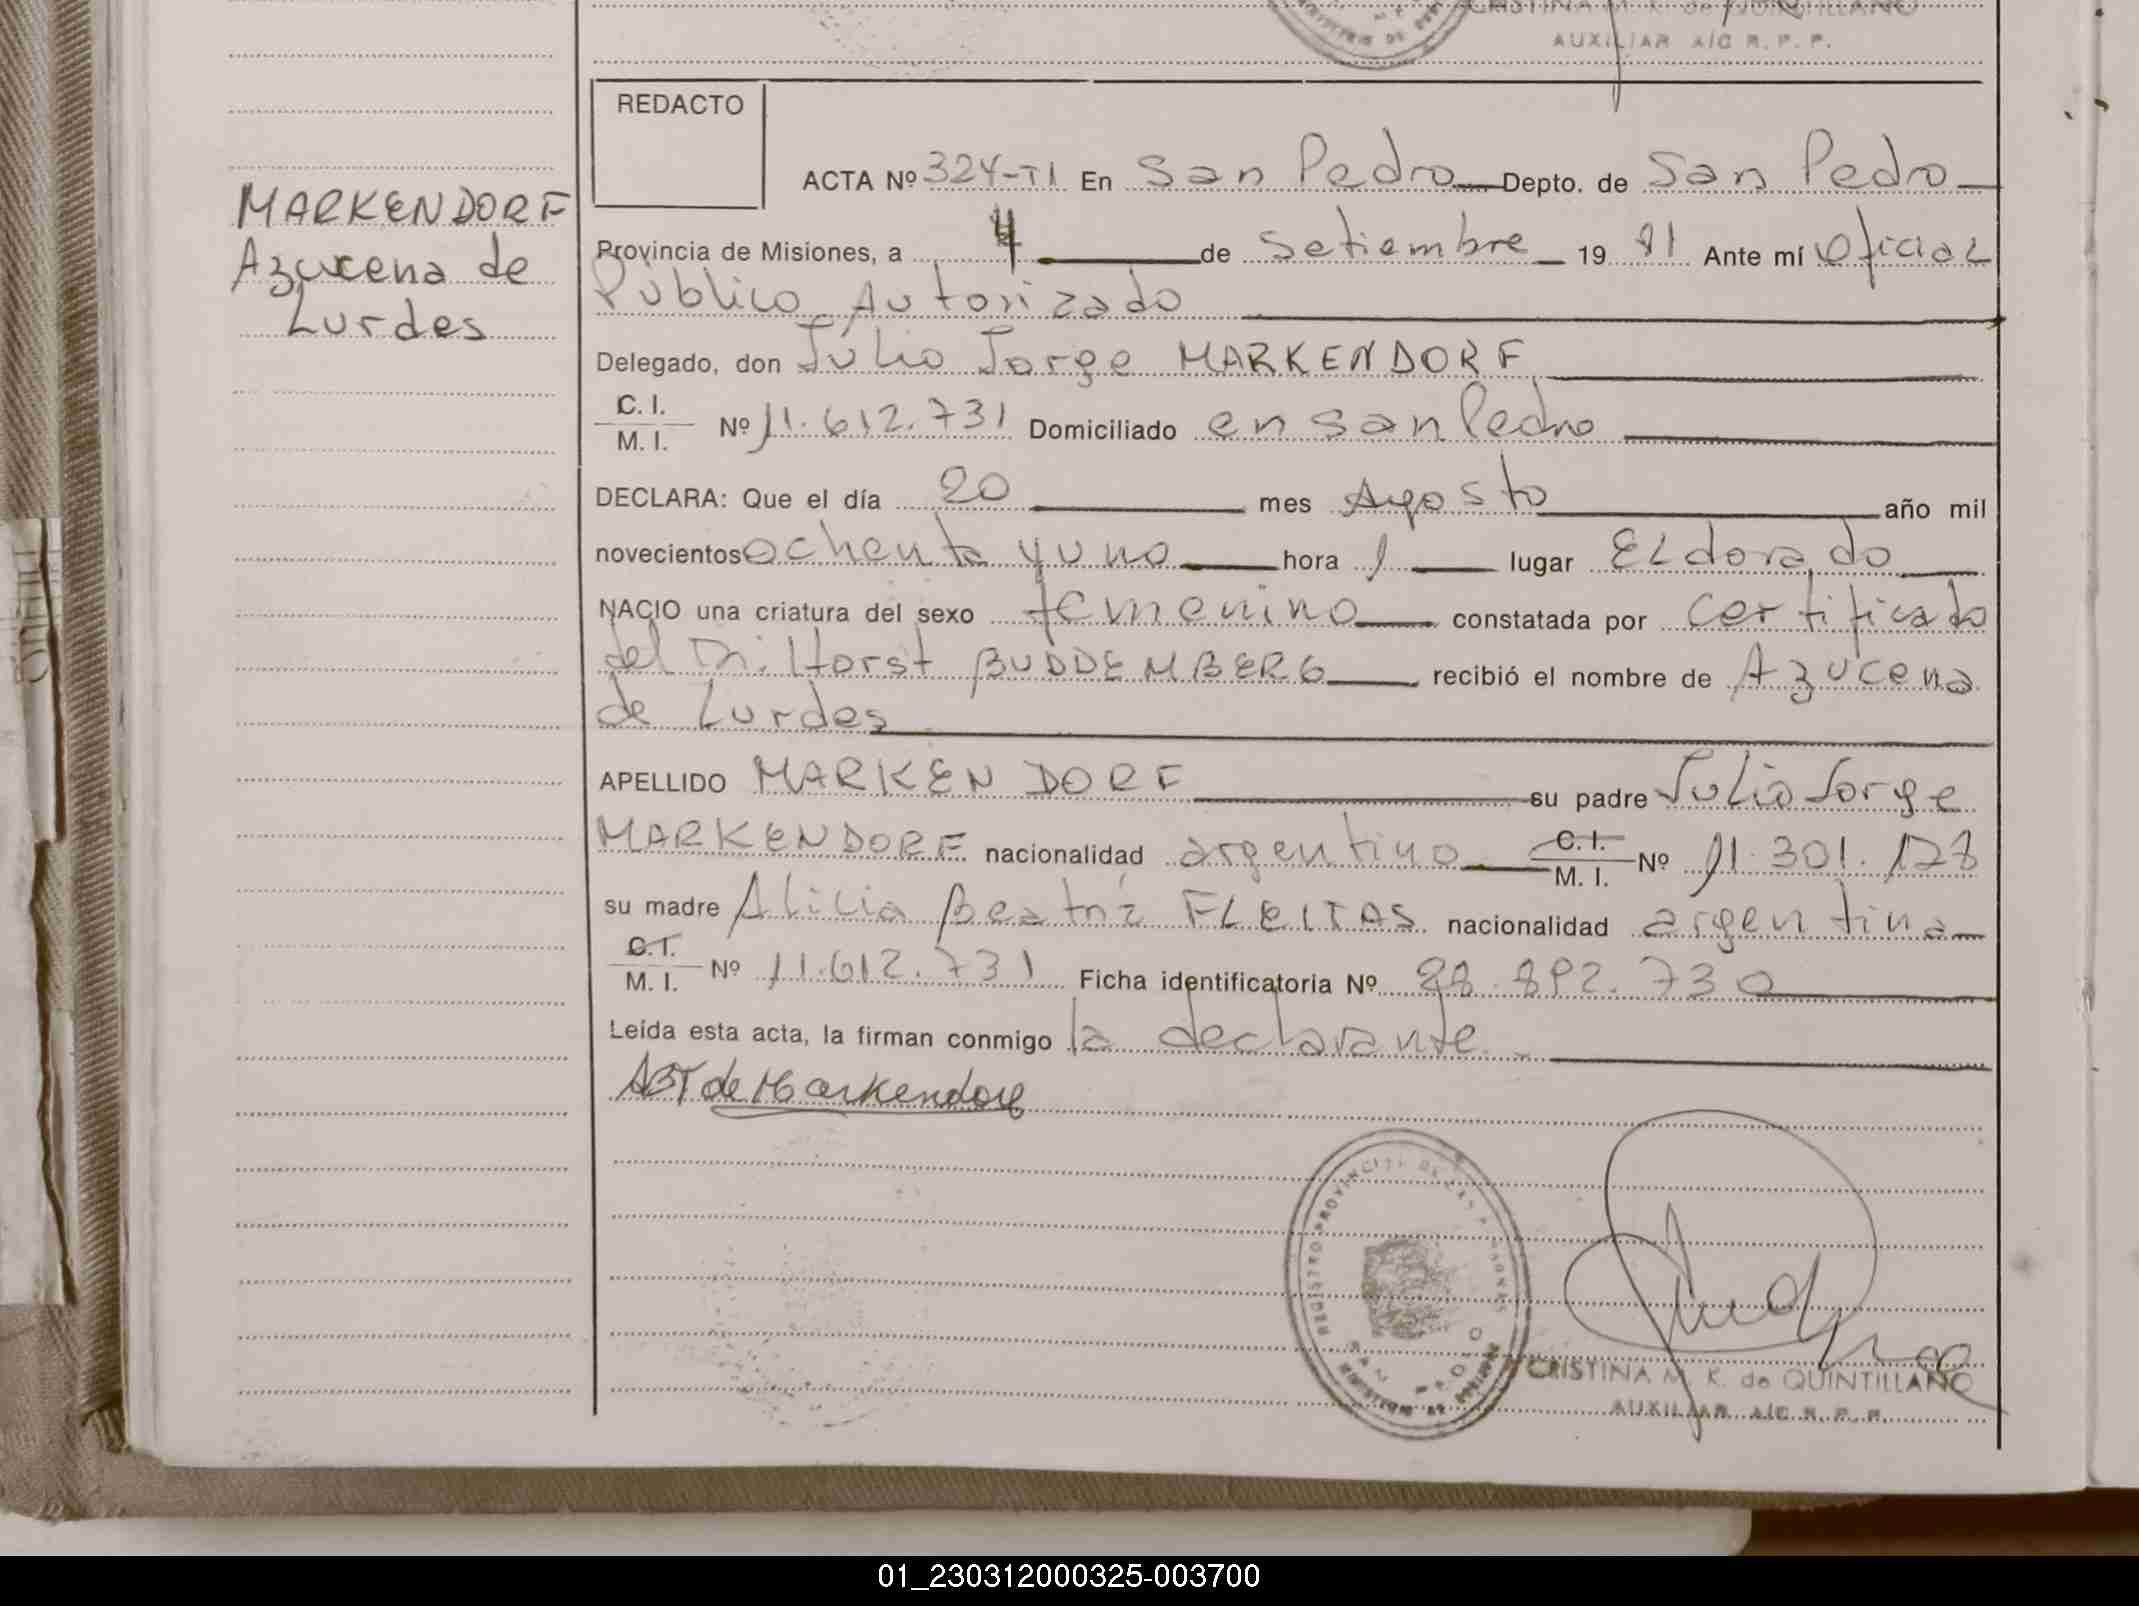 CRISTINA M. K. de QUINTILLANO
AUXILIAR A/C R. P. P.
REDACTO
MARKENDORF
Azucena de
Lurdes
ACTA Nº 324-TI En San Pedro Depto. de San Pedro
Provincia de Misiones, a 4 de Setiembre 19 81 Ante mí Oficial
Público Autorizado
Delegado, don Julio Jorge MARKENDORF
C. I.
M. I. Nº 11.612.731 Domiciliado en San Pedro
DECLARA: Que el día 20 mes Agosto año mil
novecientos ochenta y uno hora 1 lugar ELdorado
NACIO una criatura del sexo femenino constatada por certificado
del Dr. Horst BUDDEMBERG recibió el nombre de Azucena
de Lurdes
APELLIDO MARKENDORF su padre Julio Jorge
MARKENDORF nacionalidad argentino C. I. M. I. Nº 11.301.128
su madre Alicia Beatríz FLEITAS nacionalidad argentina
C. I.
M. I. Nº 11.612.731 Ficha identificatoria Nº 28.892.730
Leída esta acta, la firman conmigo la declarante
de Markendorf
REGISTRO PROVINCIAL DE LAS PERSONAS
SAN PEDRO
CRISTINA M. K. de QUINTILLANO
AUXILIAR A/C R. P. P.
01_230312000325-003700